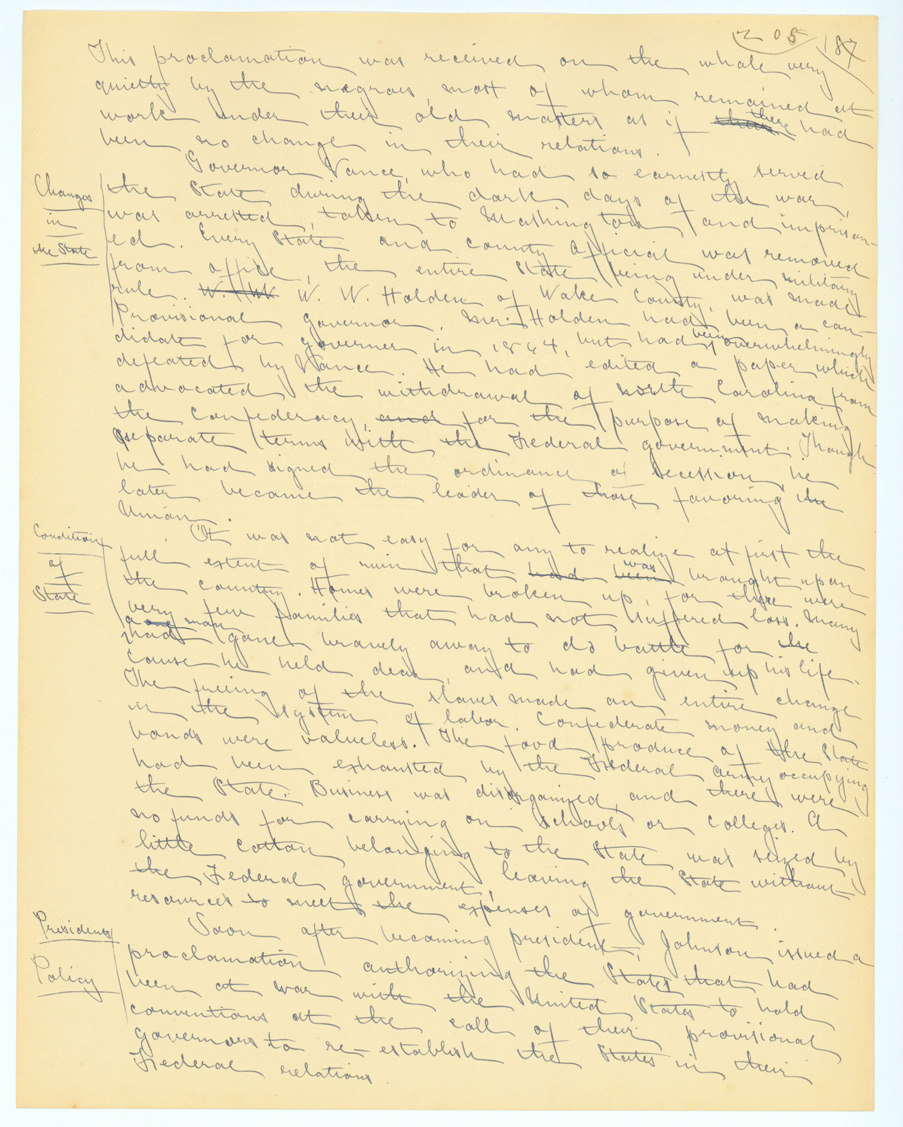 205 187
This proclamation was received on the whole very
quietly by the negroes, most of whom remained at
work under their old masters as if there had
been no change in their relations.
Changes in the State
Governor Vance, who had so earnestly served
the State during the dark days of the war,
was arrested, taken to Washington and imprison-
ed. Every State and county official was removed
from office, the entire State being under military
rule. W. W. Holden of Wake County, was made
Provisional governor. Mr. Holden had been a can-
didate for governor in 1864, but had been overwhelmingly
defeated by Vance. He had edited a paper which
advocated the withdrawal of North Carolina from
the confederacy, and for the purpose of making
separate terms with the Federal government. Though
he had signed the ordinance of secession, he
later became the leader of those favoring the
Union.
Condition of State
It was not easy for any to realize at first the
full extent of ruin that had been was wrought upon
the country. Homes were broken up, for there were
very few families that had not suffered loss. Many
a man had gone bravely away to do battle for the
cause he held dear, and had given up his life.
The freeing of the slaves made an entire change
in the system of labor. Confederate money and
bonds were valueless. The food produce of the State
had been exhausted by the Federal army occupying
the State. Business was disorganized, and there were
no funds for carrying on schools or colleges. A
little cotton belonging to the State was seized by
the Federal government, leaving the State without
resources to meet the expenses of government.
Presidents Policy
Soon after becoming president, Johnson issued a
proclamation authorizing the States that had
been at war with the United States to hold
conventions at the call of their provisional
governors to re-establish the States in their
Federal relations.